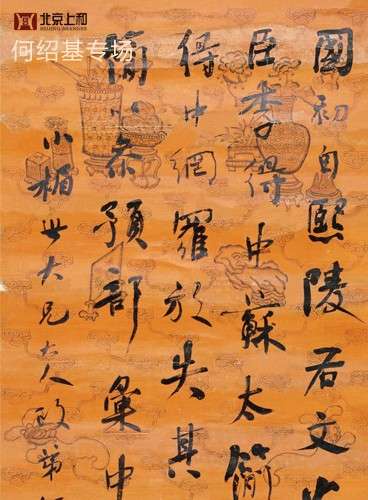 北京上和
BEIJING SHANGHE
何绍基专场
國初自熙陵右文
臣李得中蘇太簡
得中網羅放失其
簡以參預部彙中
小楣世大兄大人政弟